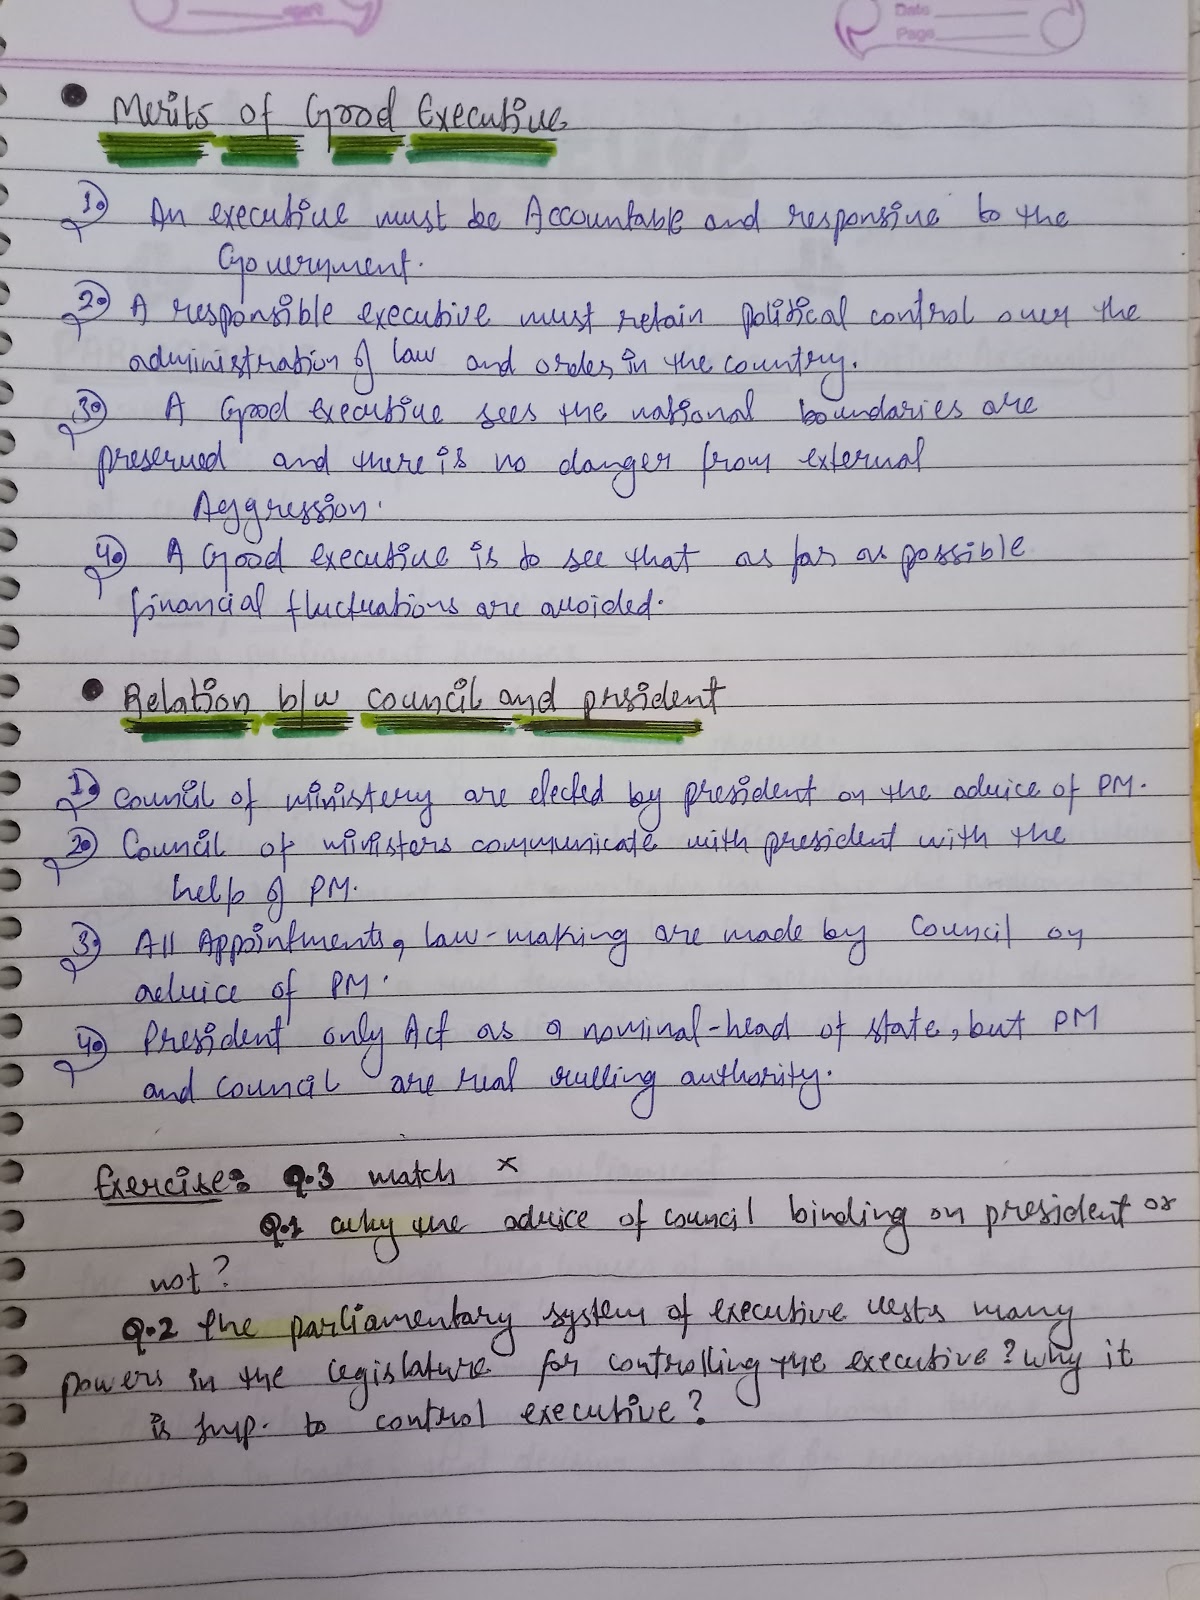 Date
Page
• Merits of Good Executive
1. An executive must be Accountable and responsive to the
Government.
2. A responsible executive must retain political control over the
administration of law and order in the country.
3. A Good executive sees the national boundaries are
preserved and there is no danger from external
Aggression.
4. A Good executive is to see that as far as possible
financial fluctuations are avoided.
• Relation b/w council and prsident
1. Council of ministery are elected by president on the advice of PM.
2. Council of ministers communicate with president with the
help of PM.
3. All Appointments, law-making are made by Council on
advice of PM.
4. President only Act as a nominal-head of state, but PM
and council are real rulling authority.
Exercise: Q.3 match ×
Q.1 why the advice of council binding on president or
not?
Q.2 the parliamentary system of executive vests many
powers in the legislature for controlling the executive? why it
is Imp. to control executive?